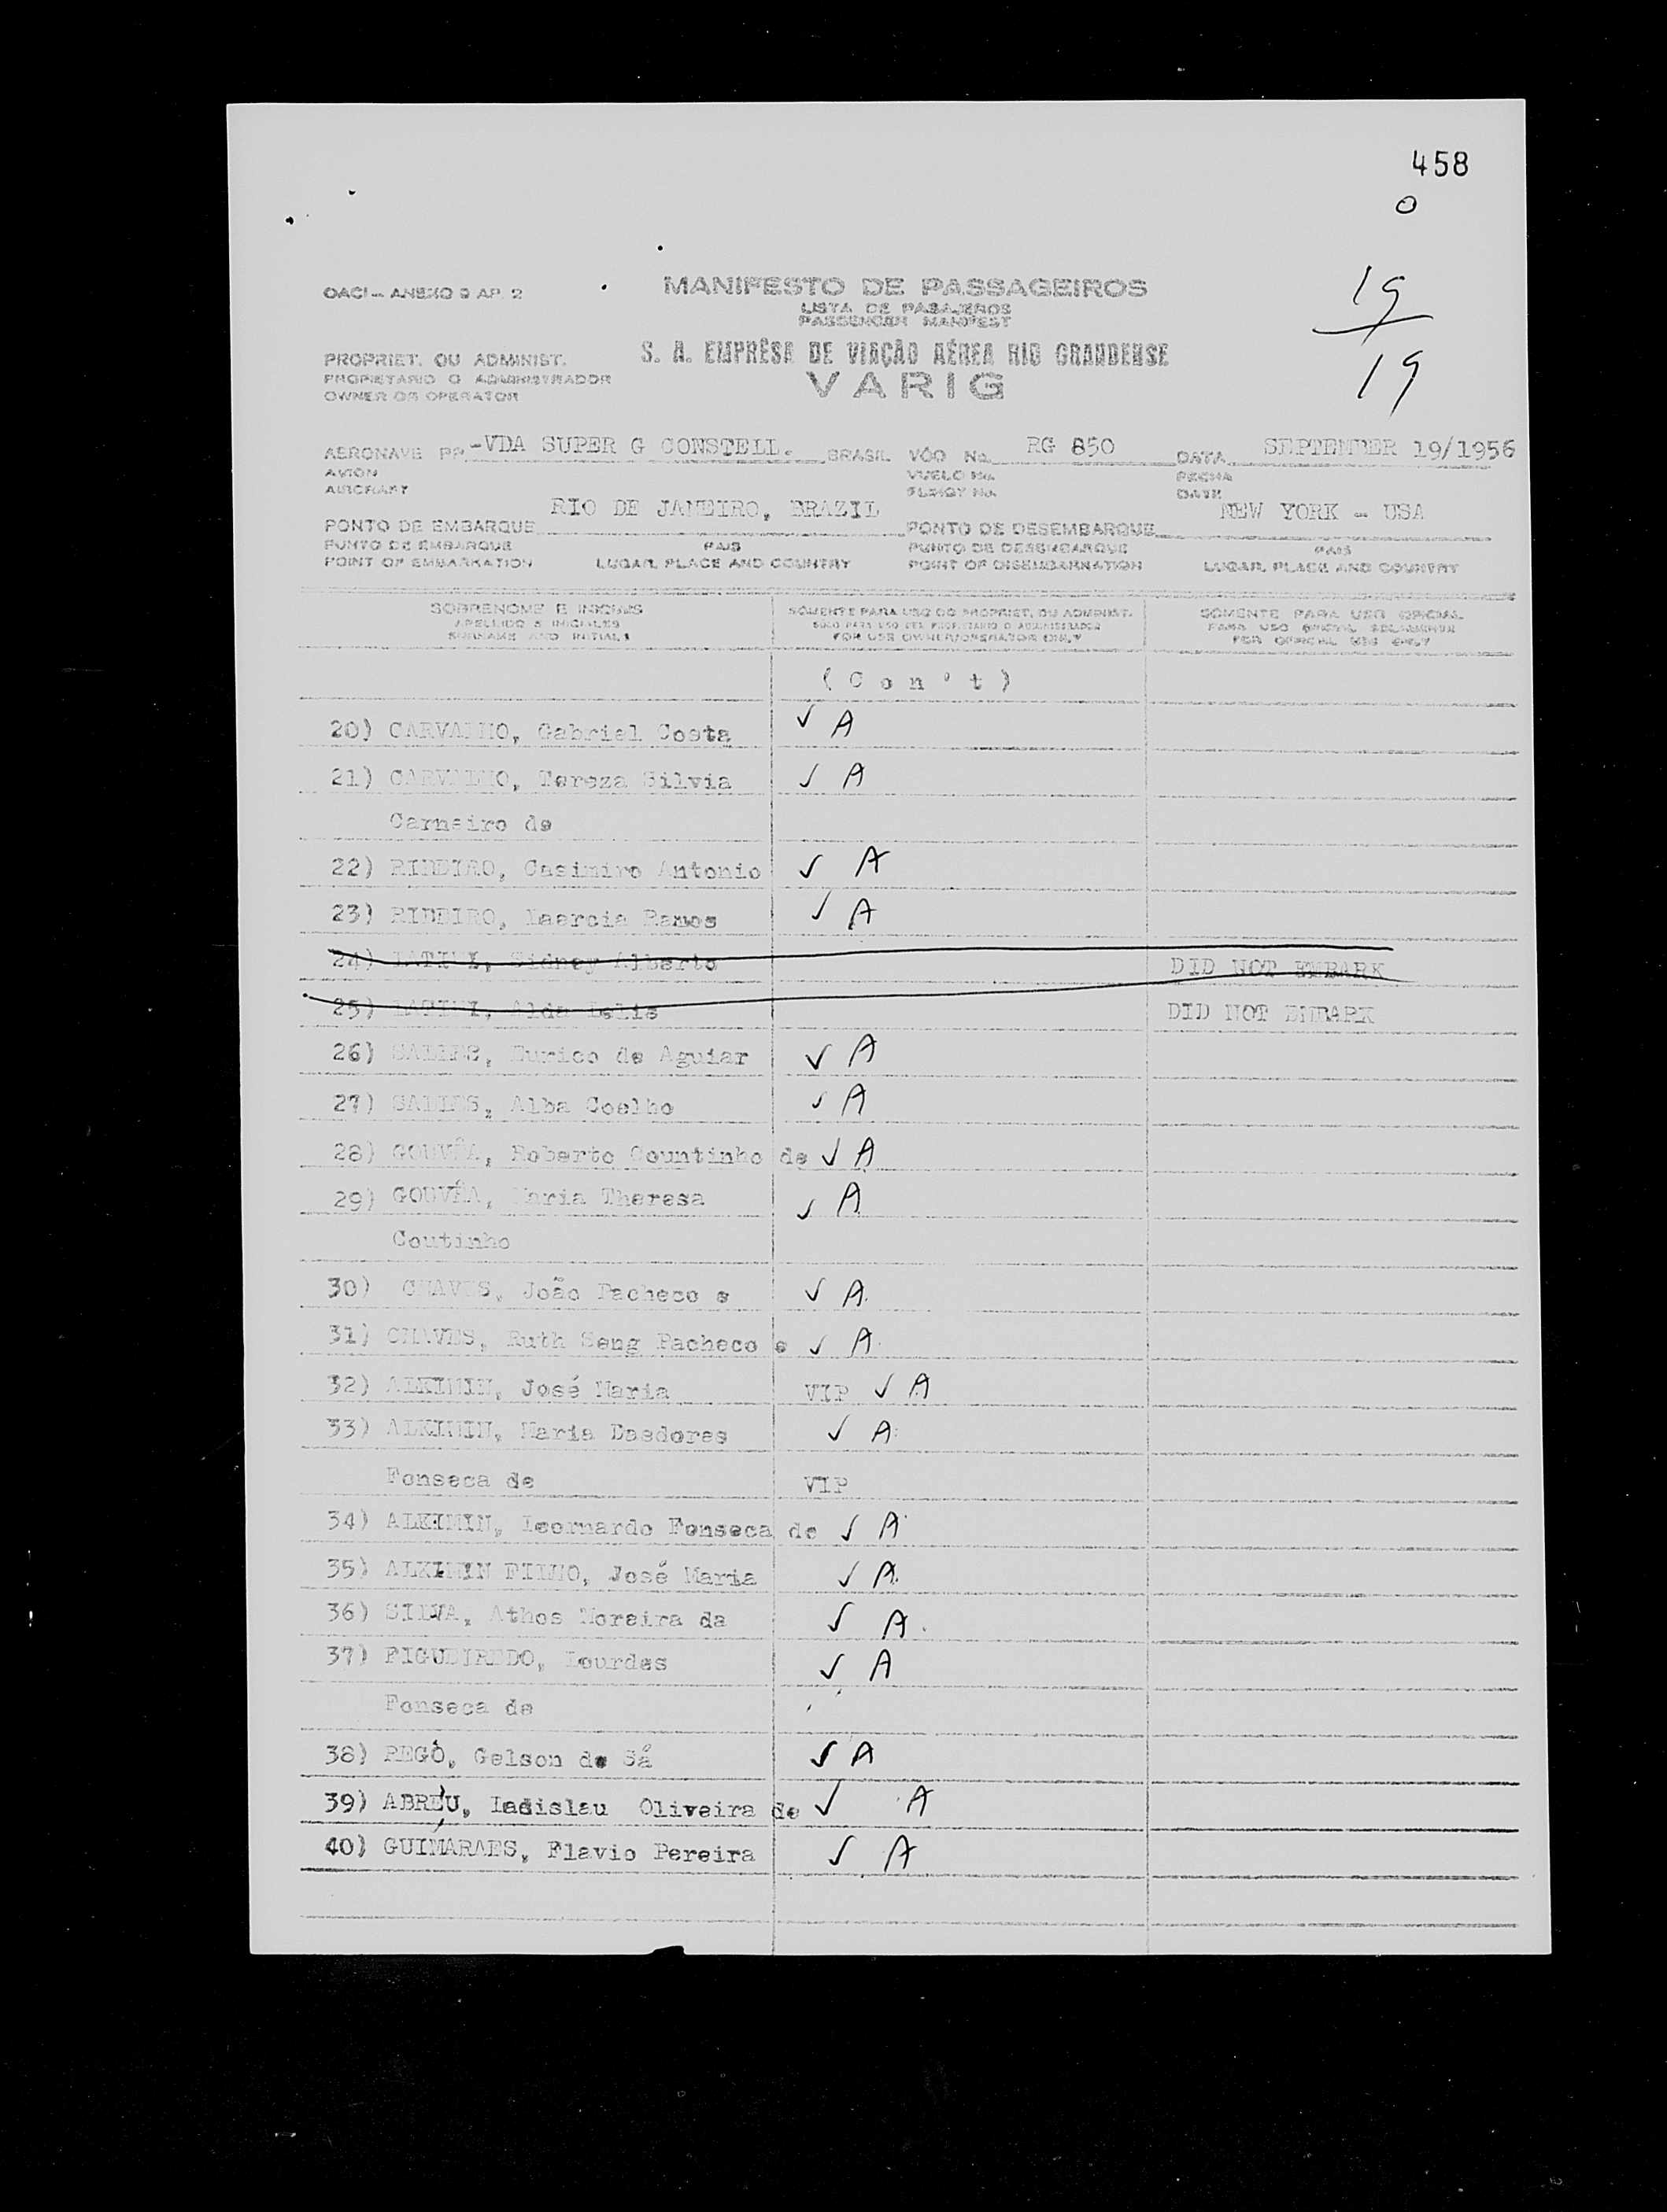 458
0
19
19
OACI — ANEXO 9 AP. 2
MANIFESTO DE PASSAGEIROS
LISTA DE PASAJEROS
PASSENGER MANIFEST
PROPRIET. OU ADMINIST.
PROPIETARIO O ADMINISTRADOR
OWNER OR OPERATOR
S. A. EMPRÊSA DE VIAÇÃO AÉREA RIO GRANDENSE
VARIG
AERONAVE PP -VDA SUPER G CONSTELL. BRASIL VÔO No. RG 850 DATA SEPTEMBER 19/1956
AVION VUELO No. FECHA
AIRCRAFT FLIGHT No. DATE
PONTO DE EMBARQUE RIO DE JANEIRO, BRAZIL PONTO DE DESEMBARQUE NEW YORK - USA
PUNTO DE EMBARQUE PAIS PUNTO DE DESEMBARQUE PAIS
POINT OF EMBARKATION LUGAR, PLACE AND COUNTRY POINT OF DISEMBARKATION LUGAR, PLACE AND COUNTRY
SOBRENOME E INICIAIS SOMENTE PARA USO DO PROPRIET. OU ADMINIST. SOMENTE PARA USO OFICIAL
APELLIDO E INICIALES SOLO PARA USO DEL PROPIETARIO O ADMINISTRADOR PARA USO OFICIAL SOLAMENTE
SURNAME AND INITIALS FOR USE OWNER/OPERATOR ONLY FOR OFFICIAL USE ONLY
( C o n ' t )
20) CARVALHO, Gabriel Costa ✓ A
21) CARVALHO, Tereza Silvia ✓ A
Carneiro de
22) RIBEIRO, Casimiro Antonio ✓ A
23) RIBEIRO, Ramos ✓ A
24) Sidney Alberto DID NOT EMBARK
25) Alda DID NOT EMBARK
26) SALLES, Eurico de Aguiar ✓ A
27) SALLES, Alba Coelho ✓ A
28) GOUVÊA, Roberto Countinho de ✓ A
29) GOUVÊA, Maria Theresa ✓ A
Coutinho
30) CHAVES, João Pacheco e ✓ A
31) CHAVES, Ruth Seng Pacheco e ✓ A
32) ALKIMIN, José Maria VIP ✓ A
33) ALKIMIN, Maria Dasdores ✓ A
Fonseca de VIP
34) ALKIMIN, Leornardo Fonseca de ✓ A
35) ALKIMIN FILHO, José Maria ✓ A
36) SILVA, Athos Moreira da ✓ A
37) FIGUEIREDO, Lourdes ✓ A
Fonseca de
38) REGO, Gelson de Sá ✓ A
39) ABREU, Ladislau Oliveira de ✓ A
40) GUIMARAES, Flavio Pereira ✓ A